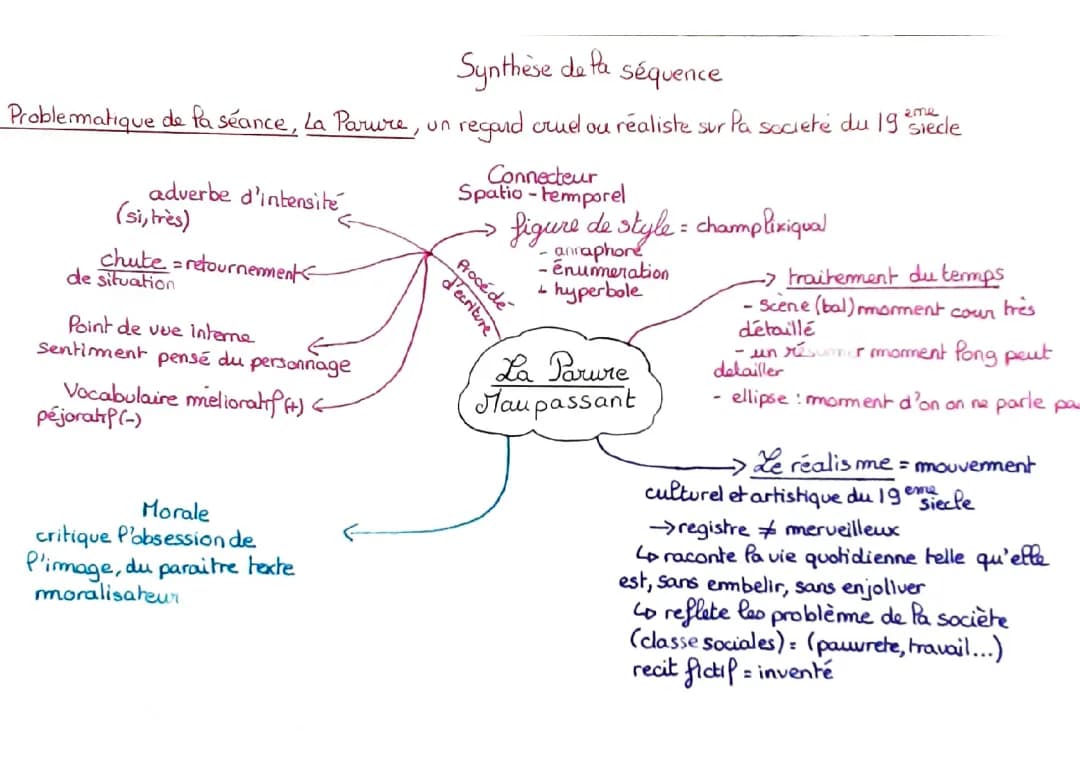 Synthèse de la séquence
Problematique de la séance, La Parure, un regard cruel ou réaliste sur la societé du 19 eme siecle
adverbe d'intensité
(si, très)
chute = retournement
de situation
Point de vue interne
sentiment pensé du personnage
Vocabulaire mélioratif (+)
péjoratif (-)
Procédé
d'écriture
Connecteur
Spatio-temporel
figure de style = champ lixiqual
- anaphore
- énumeration
- hyperbole
traitement du temps
- Scène (bal) moment cour très
détaillé
- un résumer moment long peut
detailler
- ellipse : moment d'on on ne parle pa
La Parure
Maupassant
Morale
critique l'obsession de
l'image, du paraitre texte
moralisateur
Le réalisme = mouvement
culturel et artistique du 19 eme siecle
→ registre ≠ merveilleux
↳ raconte la vie quotidienne telle qu'elle
est, sans embelir, sans enjollver
↳ reflete les problème de la sociète
(classe sociales) = (pauvrete, travail...)
recit fictif = inventé